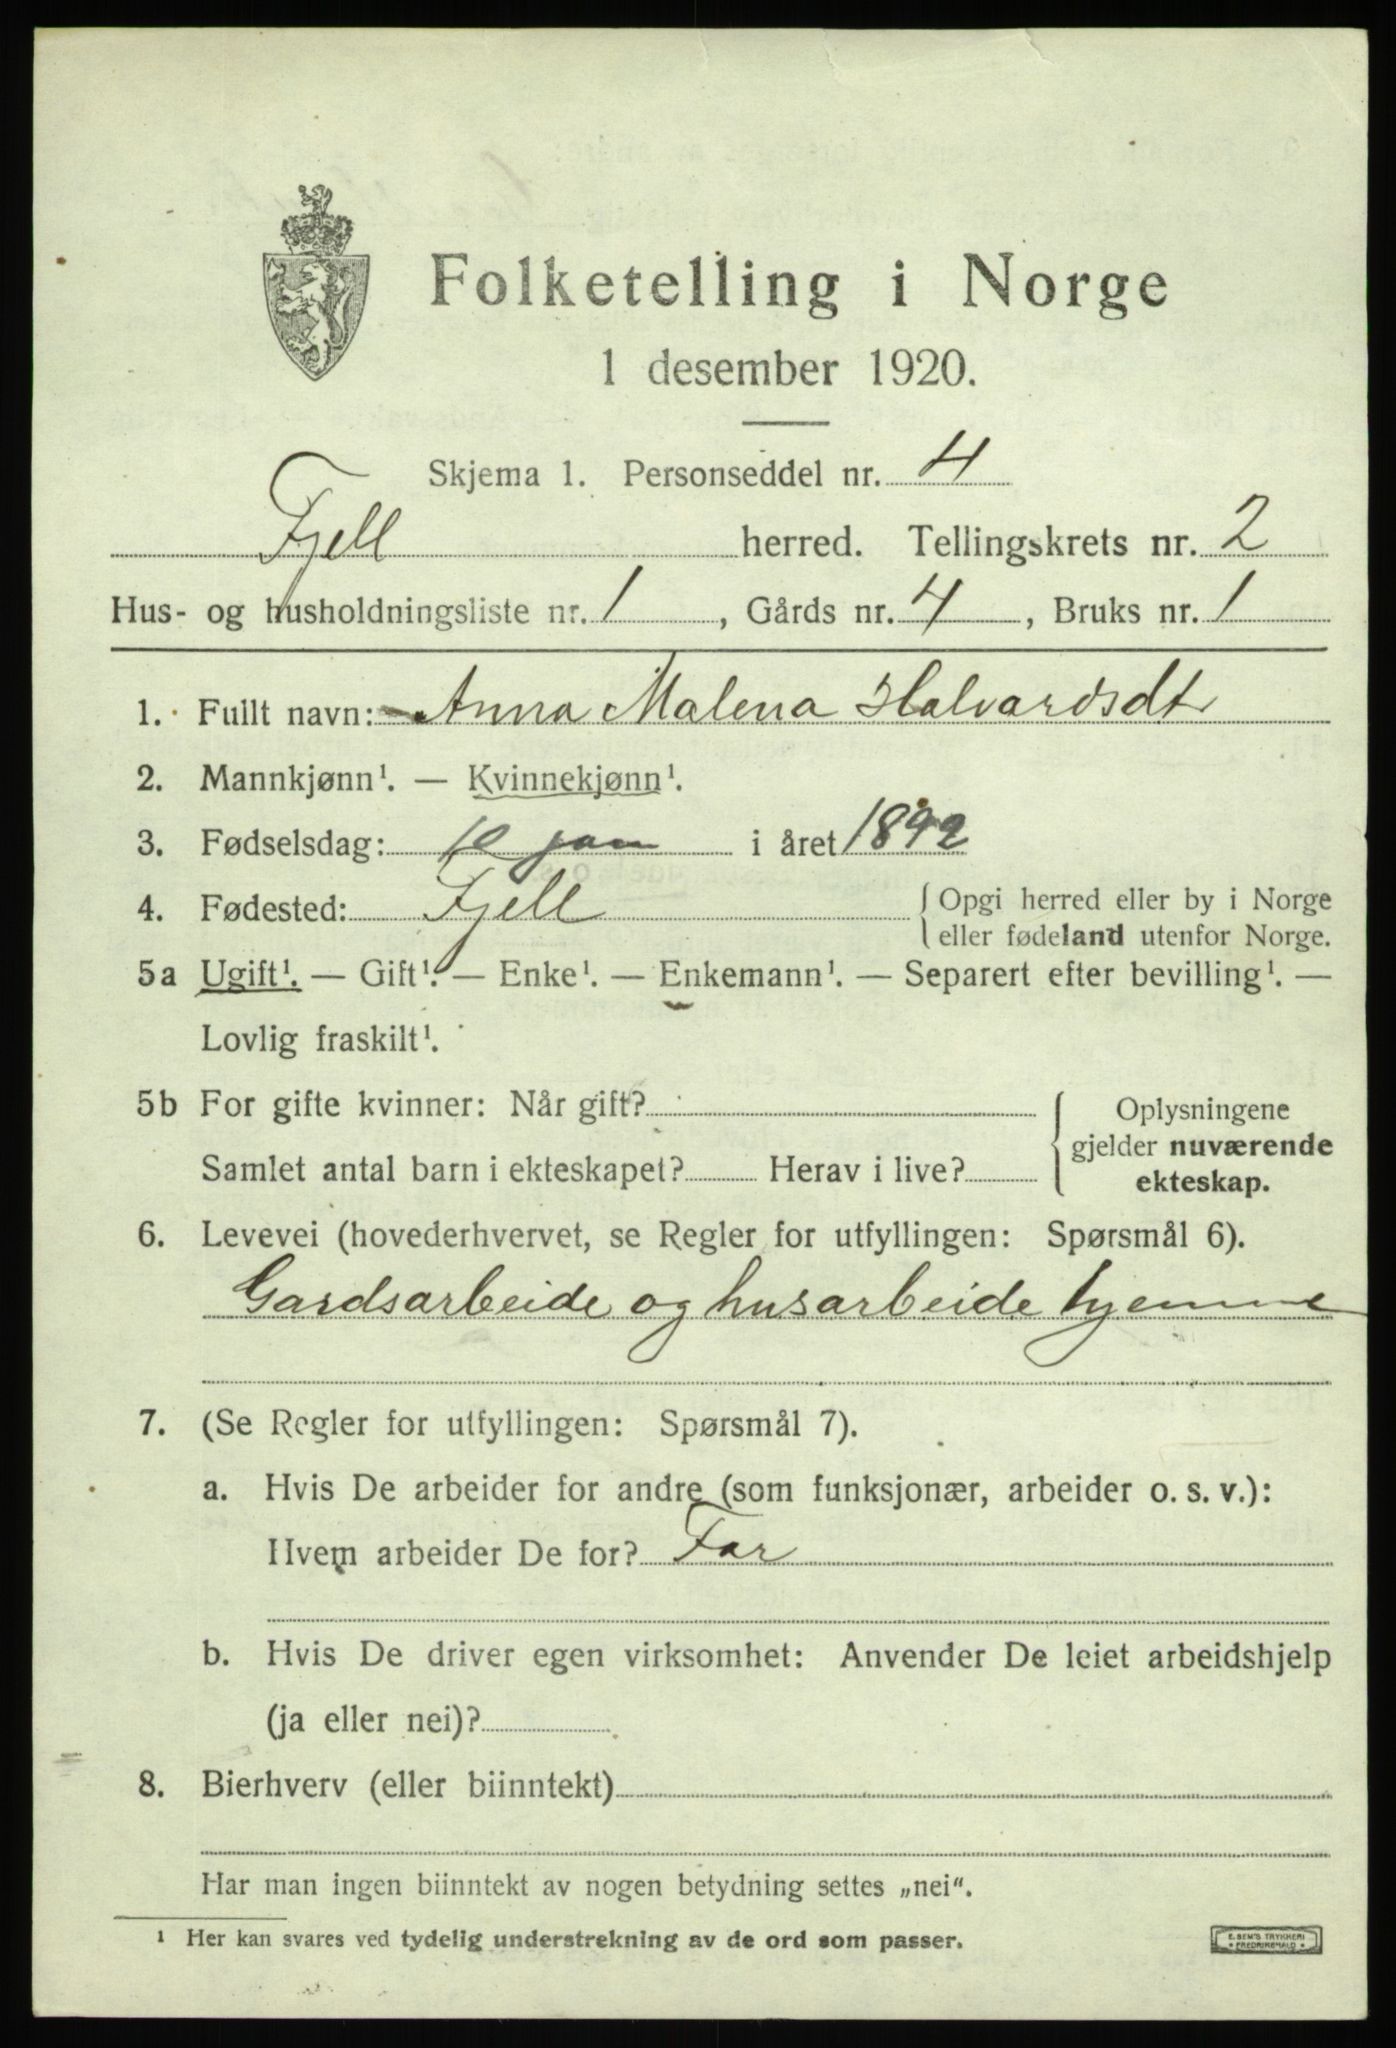 Folketelling i Norge
1 desember 1920.
Skjema 1. Personseddel nr. 4
Fjell herred. Tellingskrets nr. 2
Hus- og husholdningsliste nr. 1, Gårds nr. 4, Bruks nr. 1
1. Fullt navn: Anna Malena Halvardsdt
2. Mannkjønn¹. — Kvinnekjønn¹.
3. Fødselsdag: 10 jan i året 1892
4. Fødested: Fjell { Opgi herred eller by i Norge
eller fødeland utenfor Norge.
5a Ugift¹. — Gift¹. — Enke¹. — Enkemann¹. — Separert efter bevilling¹. —
Lovlig fraskilt¹.
5b For gifte kvinner: Når gift? { Oplysningene
gjelder nuværende
Samlet antal barn i ekteskapet? Herav i live? ekteskap.
6. Levevei (hovederhvervet, se Regler for utfyllingen: Spørsmål 6).
Gardsarbeide og husarbeide hjemme
7. (Se Regler for utfyllingen: Spørsmål 7).
a. Hvis De arbeider for andre (som funksjonær, arbeider o. s. v.):
Hvem arbeider De for? Far
b. Hvis De driver egen virksomhet: Anvender De leiet arbeidshjelp
(ja eller nei)?
8. Bierhverv (eller biinntekt)
Har man ingen biinntekt av nogen betydning settes „nei“.
¹ Her kan svares ved tydelig understrekning av de ord som passer.
E. SEM'S TRYKKERI
FREDRIKSHALD